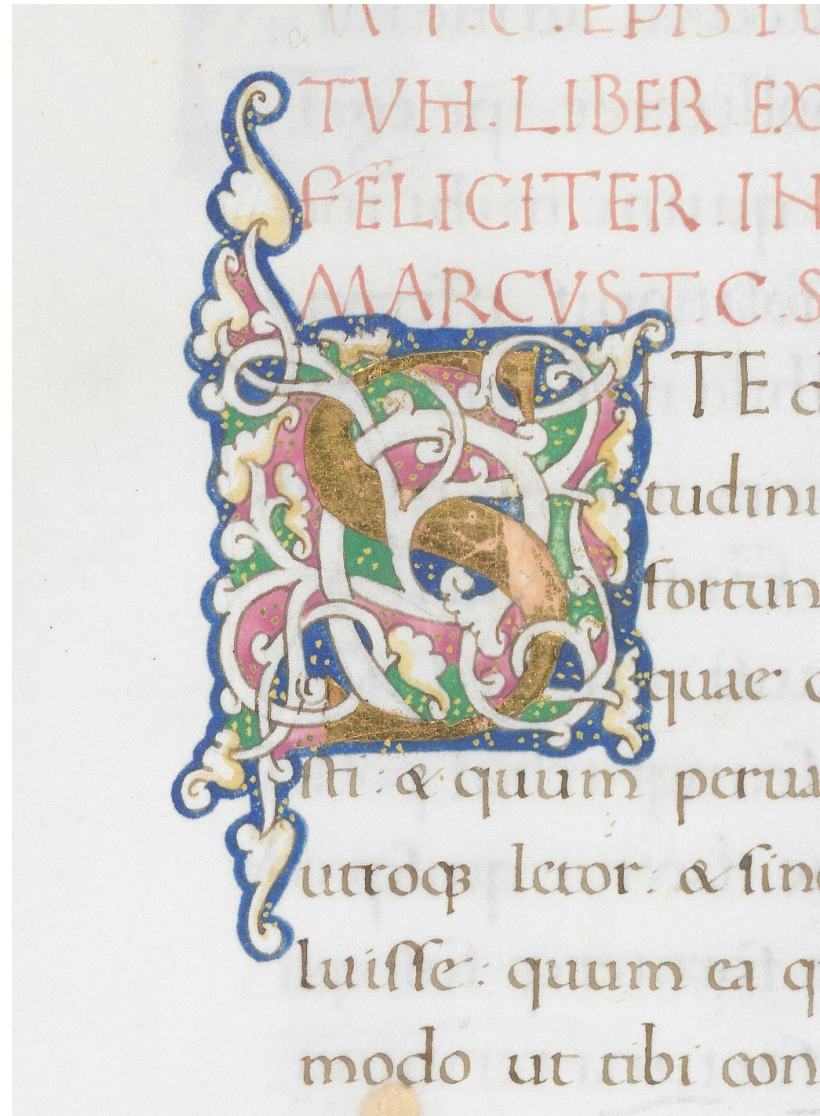 M T. C. EPISTO
TVM. LIBER EX
FELICITER IN
MARCVS T. C. S
SI TE
tudini
fortun
quae c
sti: & quum perua
utroq; letor: & sinc
luisse: quum ea q
modo ut tibi con